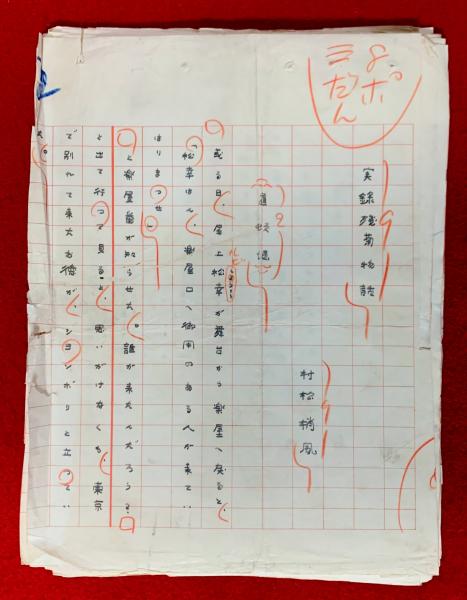 8ポ
三だん
実録残菊物語
村松梢風
（道頓堀）
或る日、尾上松幸が舞台から楽屋へ戻ると、
「松幸はん、楽屋口へ御用のある人が来てい
はりまつせ」
と楽屋番が知らせた。誰が来たんだろう
と出て行つて見ると、思いがけなくも、東京
で別れて来たお徳が、シヨンボリと立つてい
た。